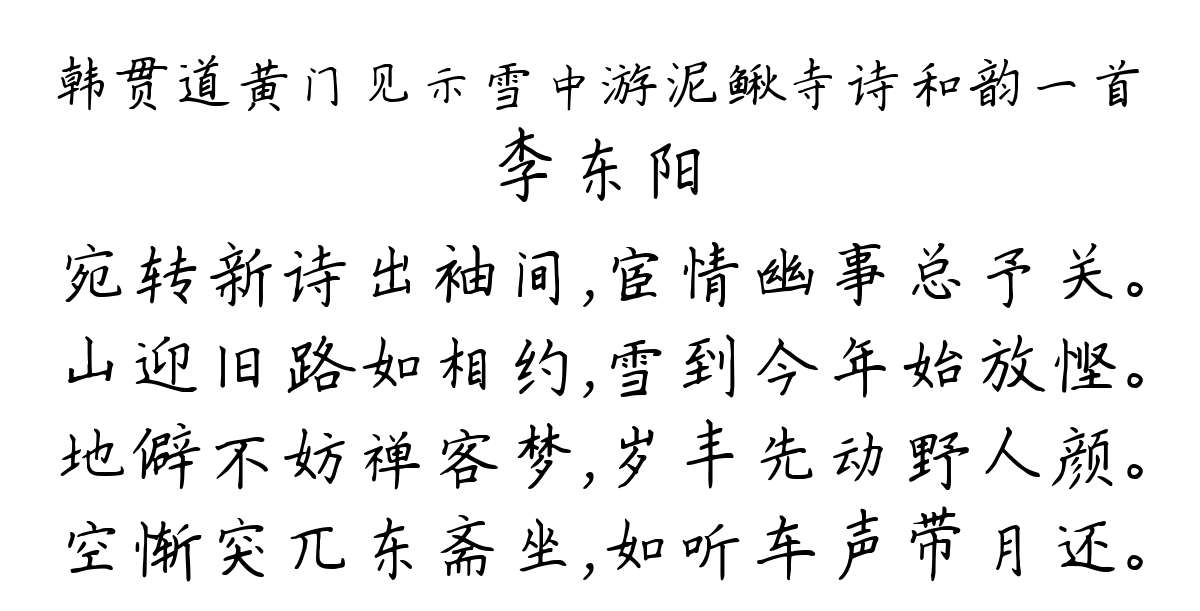 韩贯道黄门见示雪中游泥鳅寺诗和韵一首
李东阳
宛转新诗出袖间,宦情幽事总予关。
山迎旧路如相约,雪到今年始放悭。
地僻不妨禅客梦,岁丰先动野人颜。
空惭突兀东斋坐,如听车声带月还。